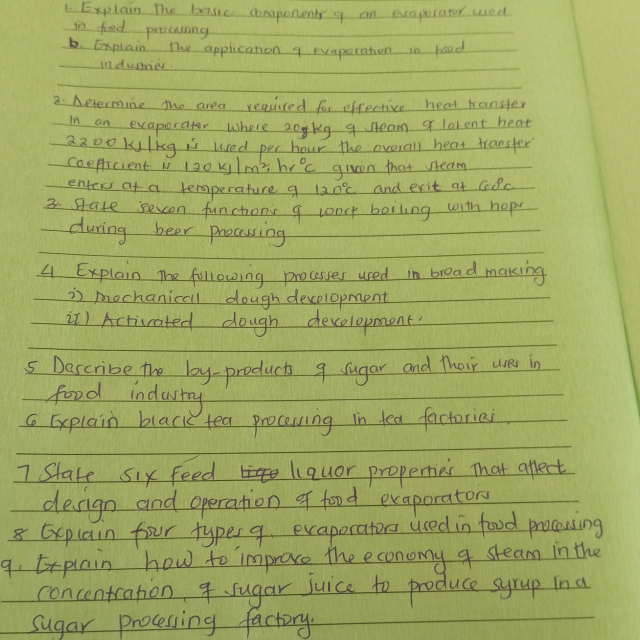 1. Explain the basic components of an evaporator used
in food processing
b. Explain the application of evaporation in food
industries.
2. Determine the area required for effective heat transfer
in an evaporator where 20kg of steam of latent heat
2200 kJ/kg is used per hour the overall heat transfer
coefficient is 120 kJ/m² hr °C given that steam
enters at a temperature of 120°c and exit at
3. State seven functions of wort boiling with hops
during beer processing
4 Explain the following processes used in bread making
i) Mechanical dough development
ii) Activated dough development.
5 Describe the by-products of sugar and their uses in
food industry
6 Explain black tea processing in tea factories
7 State six feed liquor properties that affect
design and operation of food evaporators
8 Explain four types of evaporators used in food processing
9. Explain how to improve the economy of steam in the
concentration of sugar juice to produce syrup in a
sugar processing factory.